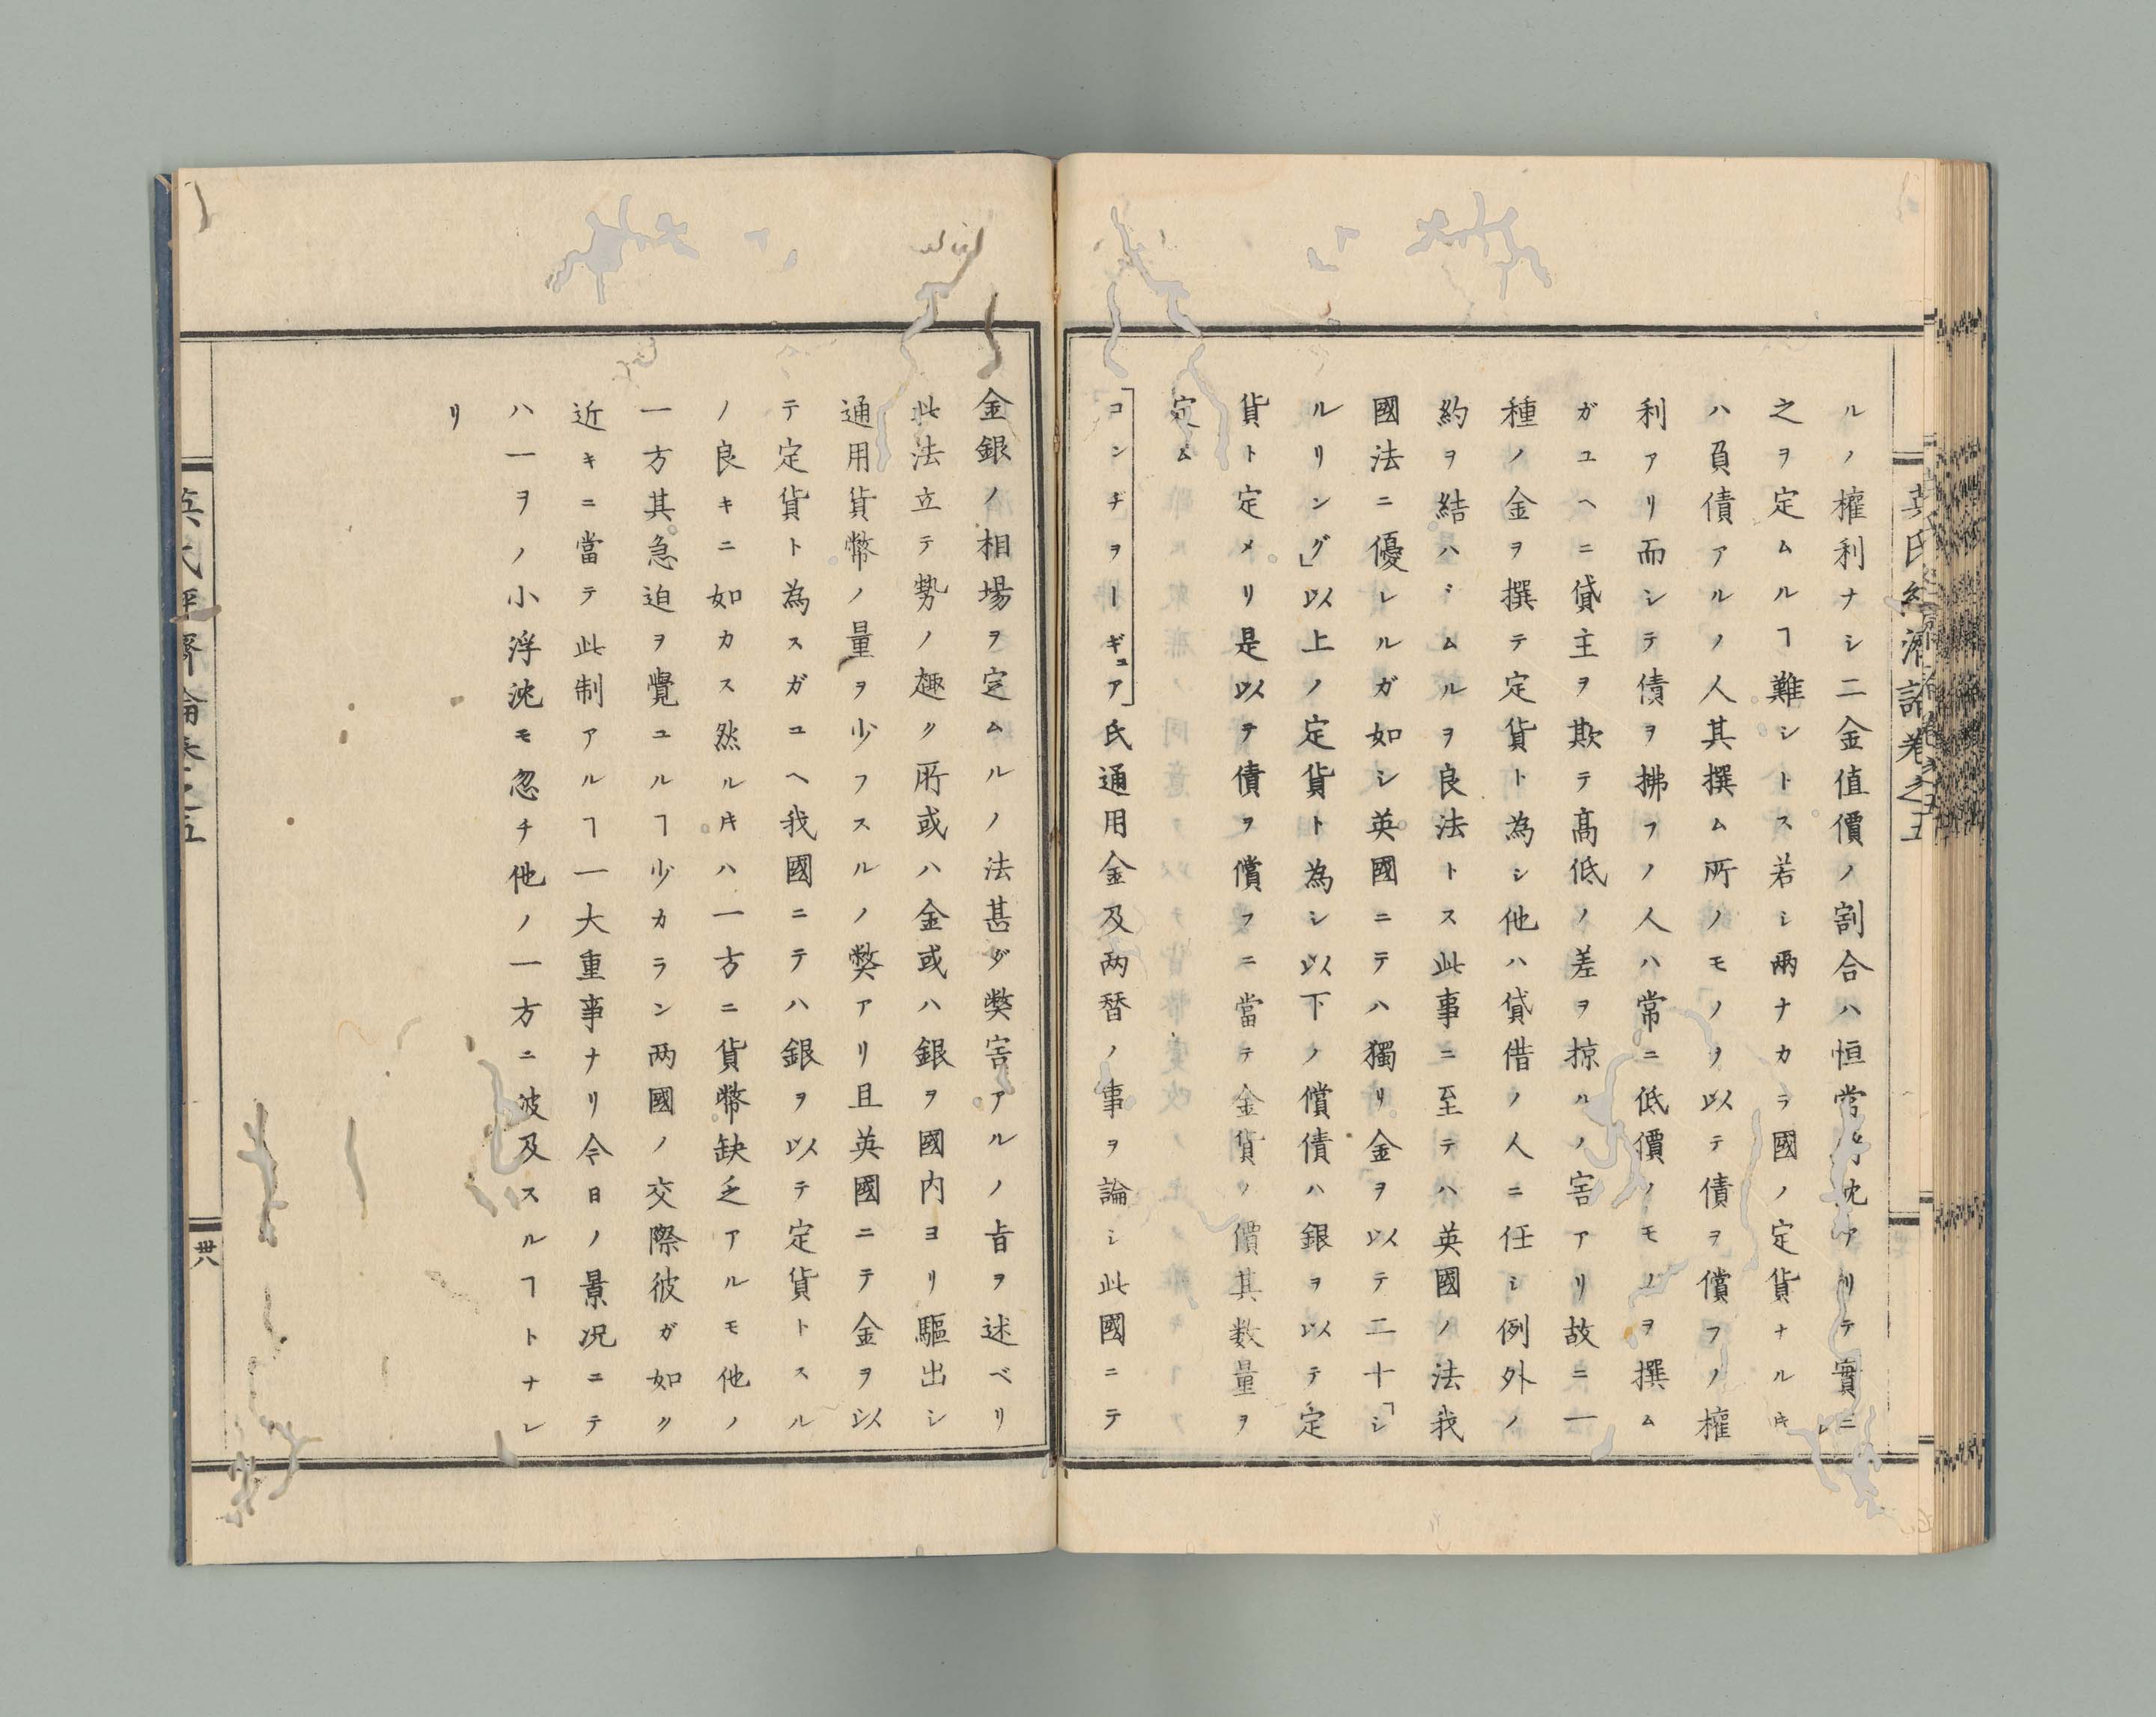 英氏經濟論卷之五
ルノ權利ナシ二金値價ノ割合ハ恒常浮沈アリテ實ニ
之ヲ定ムルヿ難シトス若シ兩ナカラ國ノ定貨ナル𪜈
ハ負債アルノ人其撰ム所ノモノヲ以テ債ヲ償フノ權
利アリ而シテ債ヲ拂フノ人ハ常ニ低價ノモノヲ撰ム
ガユヘニ貸主ヲ欺テ高低ノ差ヲ掠ルノ害アリ故ニ一
種ノ金ヲ撰テ定貨ト為シ他ハ貸借ノ人ニ任シ例外ノ
約ヲ結ハシムルヲ良法トス此事ニ至テハ英國ノ法我
國法ニ優レルガ如シ英國ニテハ獨リ金ヲ以テ二十「シ
ルリング」以上ノ定貨ト為シ以下ノ償債ハ銀ヲ以テ定
貨ト定メリ是以テ債ヲ償フニ當テ金貨ノ價其数量ヲ
定ム
コンヂヲーギュア氏通用金及两替ノ事ヲ論シ此國ニテ
金銀ノ相場ヲ定ムルノ法甚ダ弊害アルノ旨ヲ述ベリ
此法立テ勢ノ趣ク所或ハ金或ハ銀ヲ國内ヨリ驅出シ
通用貨幣ノ量ヲ少フスルノ弊アリ且英國ニテ金ヲ以
テ定貨ト為スガユヘ我國ニテハ銀ヲ以テ定貨トスル
ノ良キニ如カス然ル𪜈ハ一方ニ貨幣缺乏アルモ他ノ
一方其急迫ヲ覺ユルヿ少カラン两國ノ交際彼ガ如ク
近キニ當テ此制アルヿ一大重事ナリ今日ノ景况ニテ
ハ一ヲノ小浮沈モ忽チ他ノ一方ニ波及スルヿトナレ
リ
英氏經濟論卷之五
卅八